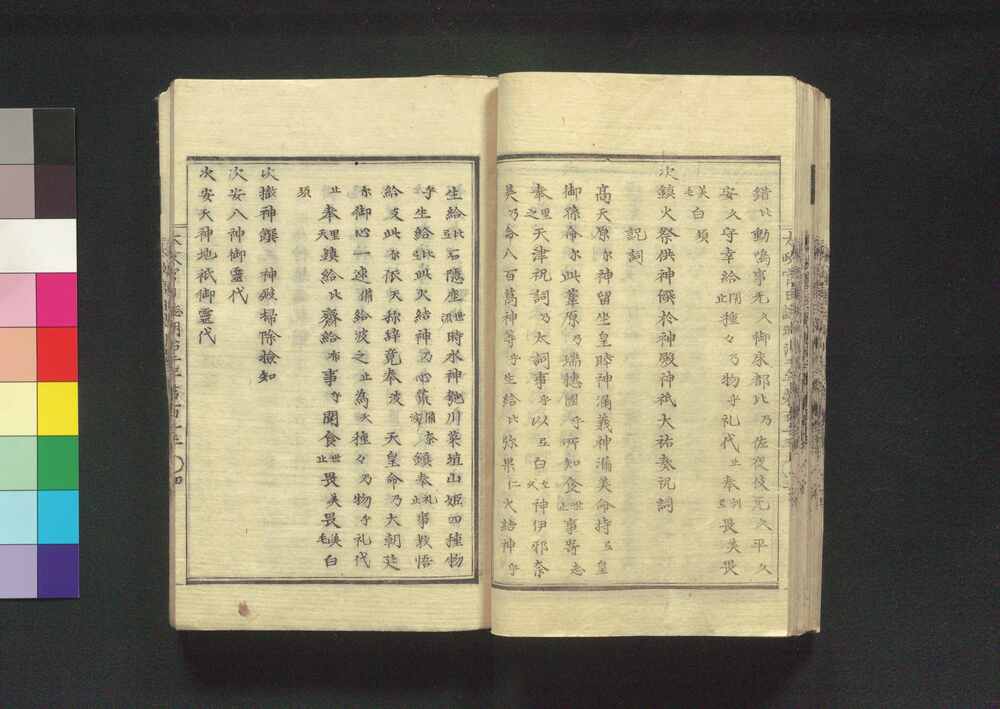 錯比動鳴事无久御床都比乃佐夜伎无久平久
安久守幸給閉止種々乃物乎礼代止奉利氐畏美畏
美白須
次鎮火祭供神饌於神殿神祇大祐奏祝詞
祝詞
高天原尓神留坐皇睦神漏義神漏美命持氐皇
御孫命尓此葦原乃瑞穂国乎所知食世止事寄志
奉里之天津祝詞乃太詞事乎以氐白久神伊邪奈
美乃命八百萬神等乎生給比弥果仁火結神乎
生給比氐石隠座世留時水神匏川菜埴山姫四種物
乎生給比此火結神乃心荒備奈波鎮奉礼止事教悟
給反此尓依天称辞竟奉波天皇命乃大朝廷
尓御心一速備給波之止為天種々乃物乎礼代
止奉里天鎮給比齋給布事乎聞食世止畏美畏美毛白
須
次撤神饌 神殿掃除検知
次安八神御霊代
次安天神地祇御霊代